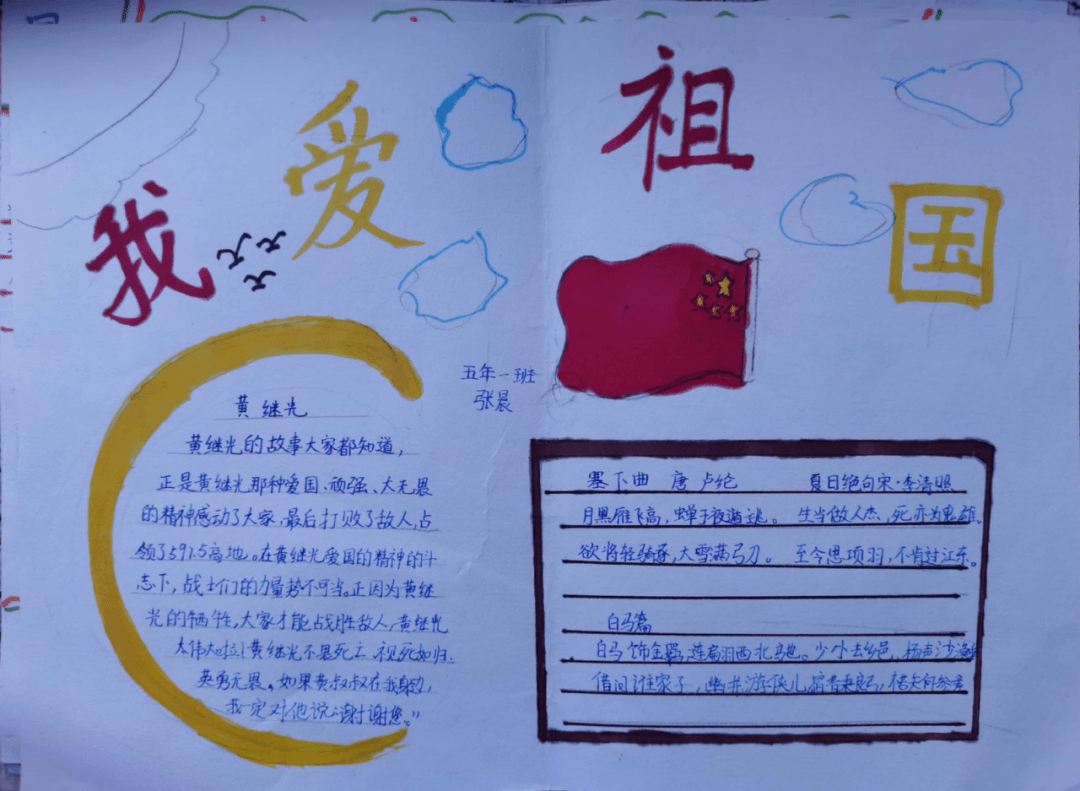 我爱祖国
五年一班
张晨
黄继光
黄继光的故事大家都知道,
正是黄继光那种爱国、顽强、大无畏
的精神感动了大家,最后打败了敌人,占
领了597.5高地。在黄继光爱国的精神的斗
志下,战士们的力量势不可当。正因为黄继
光的牺牲,大家才能战胜敌人,黄继光
太伟大啦!黄继光不畏死亡 视死如归.
英勇无畏。如果黄叔叔在我身边,
我一定对他说:“谢谢您。”
塞下曲 唐 卢纶
月黑雁飞高,单于夜遁逃。
欲将轻骑逐,大雪满弓刀。
夏日绝句宋·李清照
生当做人杰,死亦为鬼雄。
至今思项羽,不肯过江东。
白马篇
白马饰金羁,连翩西北驰。少小去乡邑,扬声沙漠
借问谁家子,幽并游侠儿,宿昔秉良弓,楛矢何参差